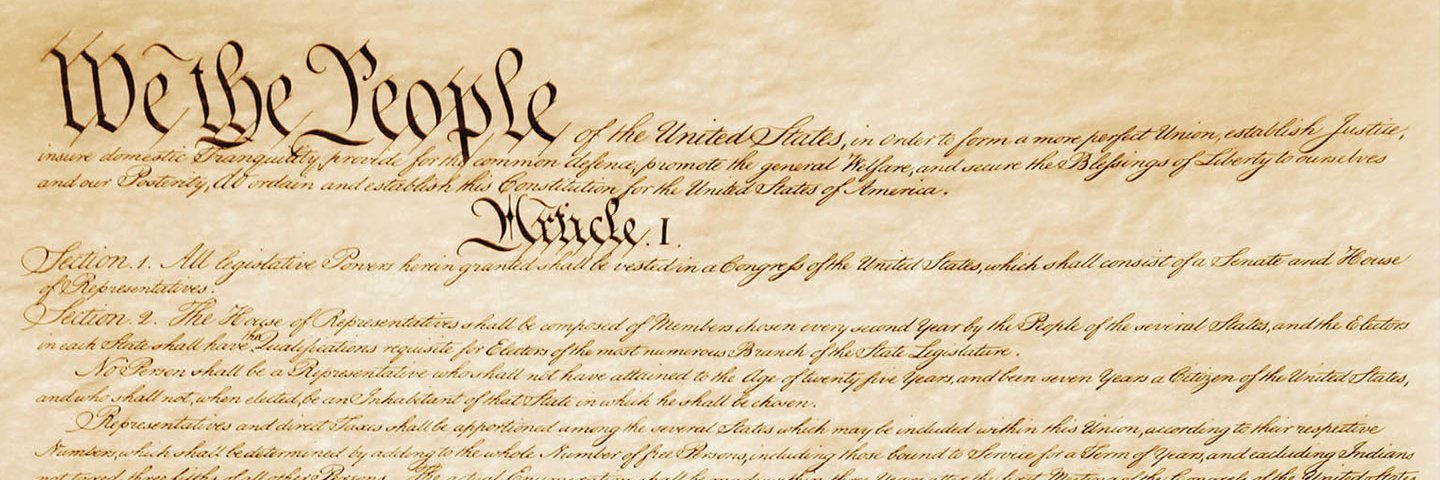 We the People of the United States, in Order to form a more perfect Union, establish Justice,
insure domestic Tranquility, provide for the common defence, promote the general Welfare, and secure the Blessings of Liberty to ourselves
and our Posterity, do ordain and establish this Constitution for the United States of America.
Article. I.
Section. 1. All legislative Powers herein granted shall be vested in a Congress of the United States, which shall consist of a Senate and House
of Representatives.
Section. 2. The House of Representatives shall be composed of Members chosen every second Year by the People of the several States, and the Electors
in each State shall have the Qualifications requisite for Electors of the most numerous Branch of the State Legislature.
No Person shall be a Representative who shall not have attained to the Age of twenty five Years, and been seven Years a Citizen of the United States,
and who shall not, when elected, be an Inhabitant of that State in which he shall be chosen.
Representatives and direct Taxes shall be apportioned among the several States which may be included within this Union, according to their respective
Numbers, which shall be determined by adding to the whole Number of free Persons, including those bound to Service for a Term of Years, and excluding Indians
not taxed, three fifths of all other Persons. The actual Enumeration shall be made within three Years after the first Meeting of the Congress of the United States